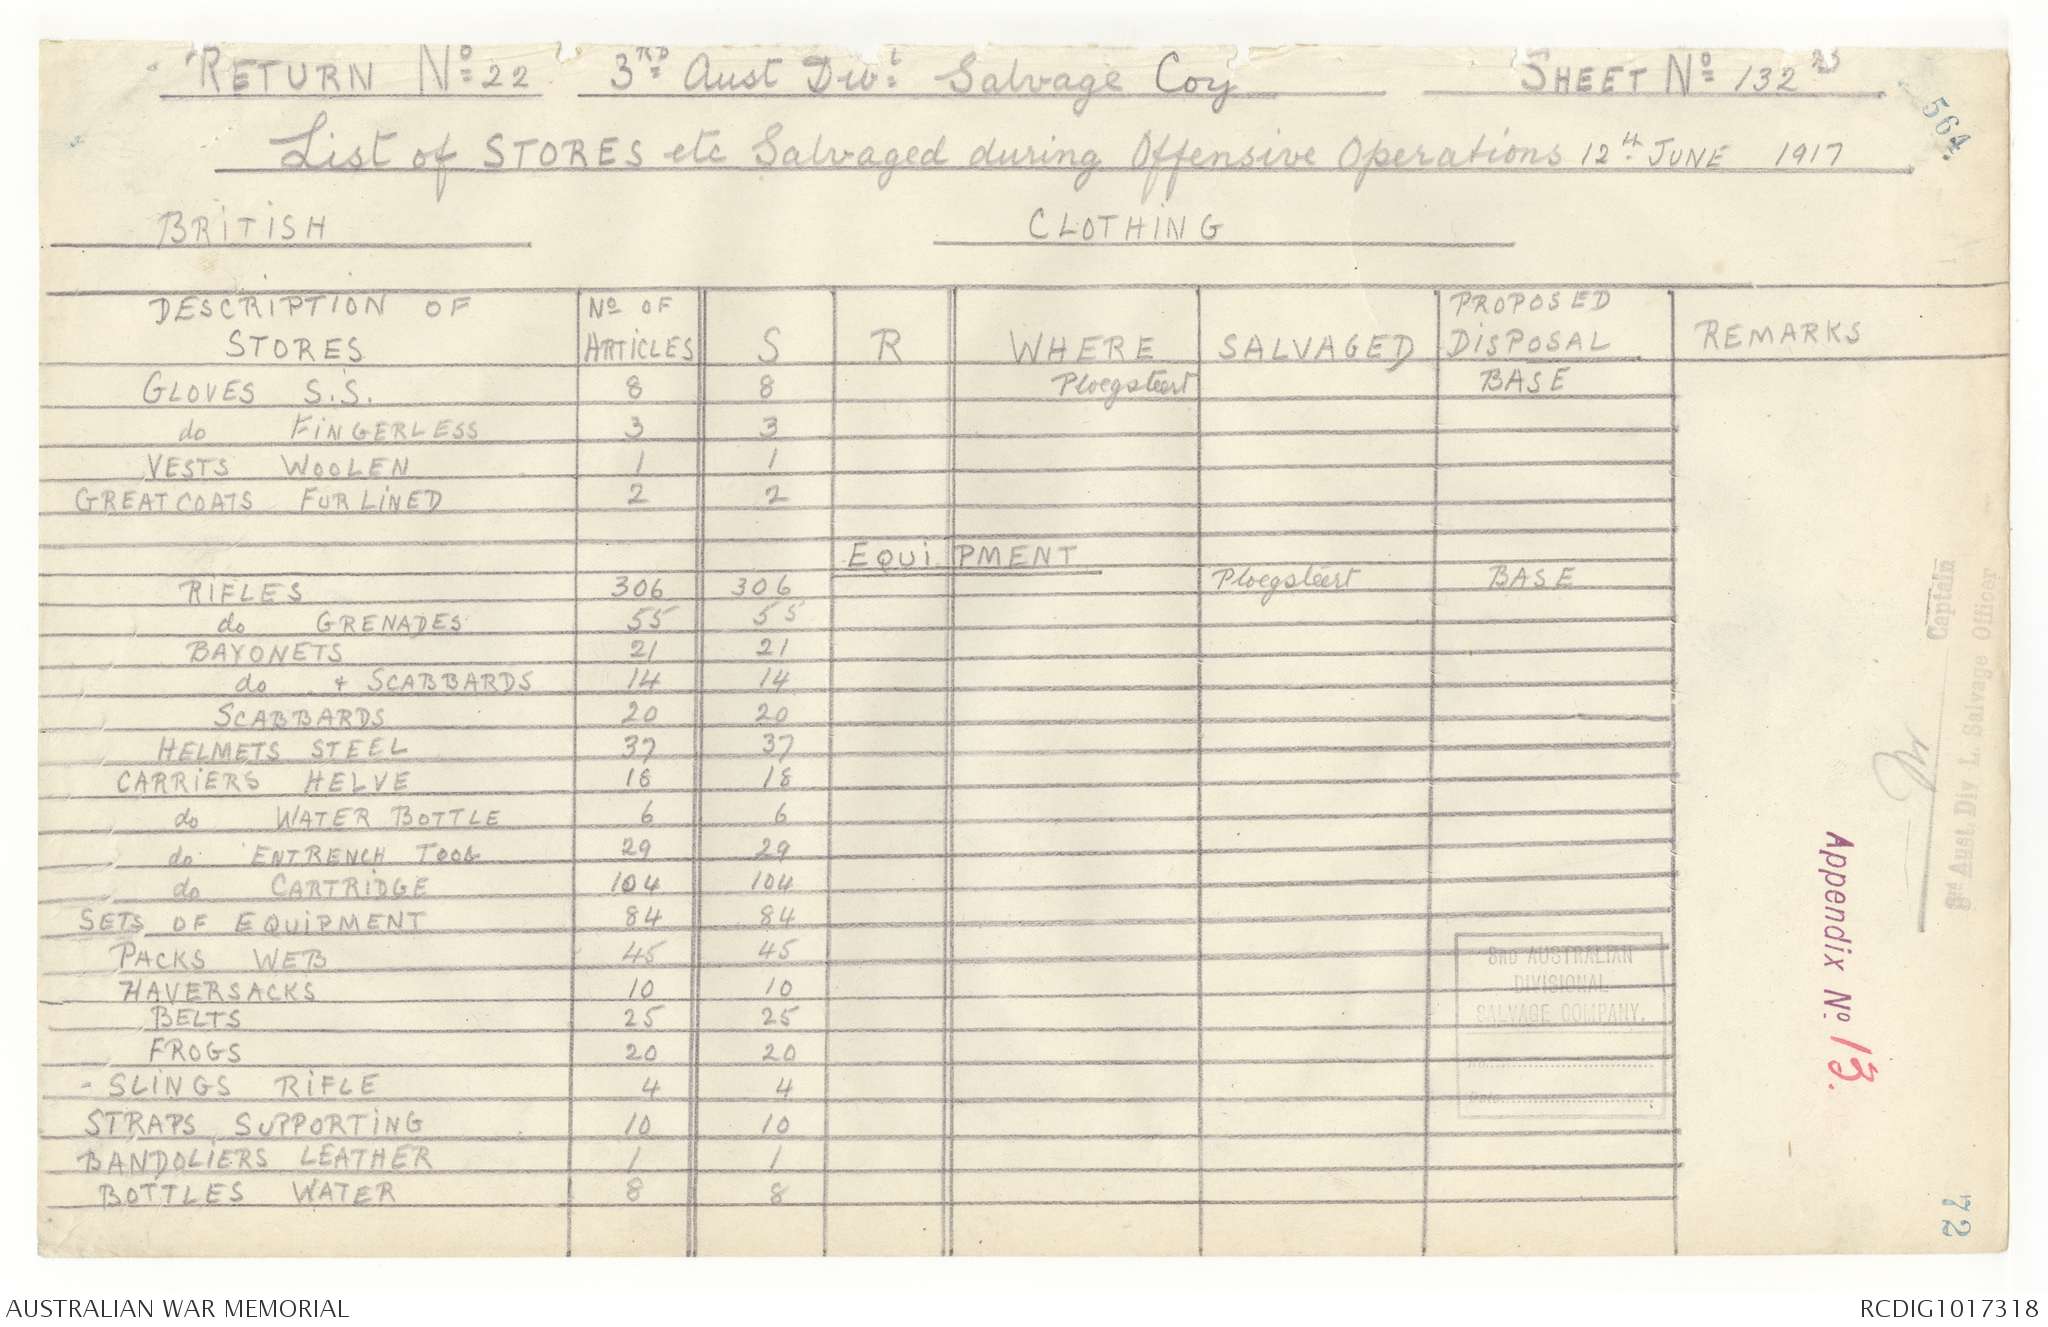 RETURN No 22 3RD Aust Divl Salvage Coy SHEET No 132
564.
List of STORES etc Salvaged during Offensive Operations 12th JUNE 1917
BRITISH CLOTHING
DESCRIPTION OF STORES No OF ARTICLES S R WHERE SALVAGED PROPOSED DISPOSAL REMARKS
GLOVES S.S. 8 8 Ploegsteert BASE
do FINGERLESS 3 3
VESTS WOOLEN 1 1
GREATCOATS FUR LINED 2 2
EQUIPMENT
RIFLES 306 306 Ploegsteert BASE
do GRENADES 55 55
BAYONETS 21 21
do + SCABBARDS 14 14
SCABBARDS 20 20
HELMETS STEEL 37 37
CARRIERS HELVE 18 18
do WATER BOTTLE 6 6
do ENTRENCH TOOL 29 29
do CARTRIDGE 104 104
SETS OF EQUIPMENT 84 84
PACKS WEB 45 45
HAVERSACKS 10 10
BELTS 25 25
FROGS 20 20
- SLINGS RIFLE 4 4
STRAPS SUPPORTING 10 10
BANDOLIERS LEATHER 1 1
BOTTLES WATER 8 8
3RD AUSTRALIAN
DIVISIONAL
SALVAGE COMPANY.
No.
Date
Captain
3rd Aust. Div L. Salvage Officer
Appendix No. 13.
72
AUSTRALIAN WAR MEMORIAL RCDIG1017318